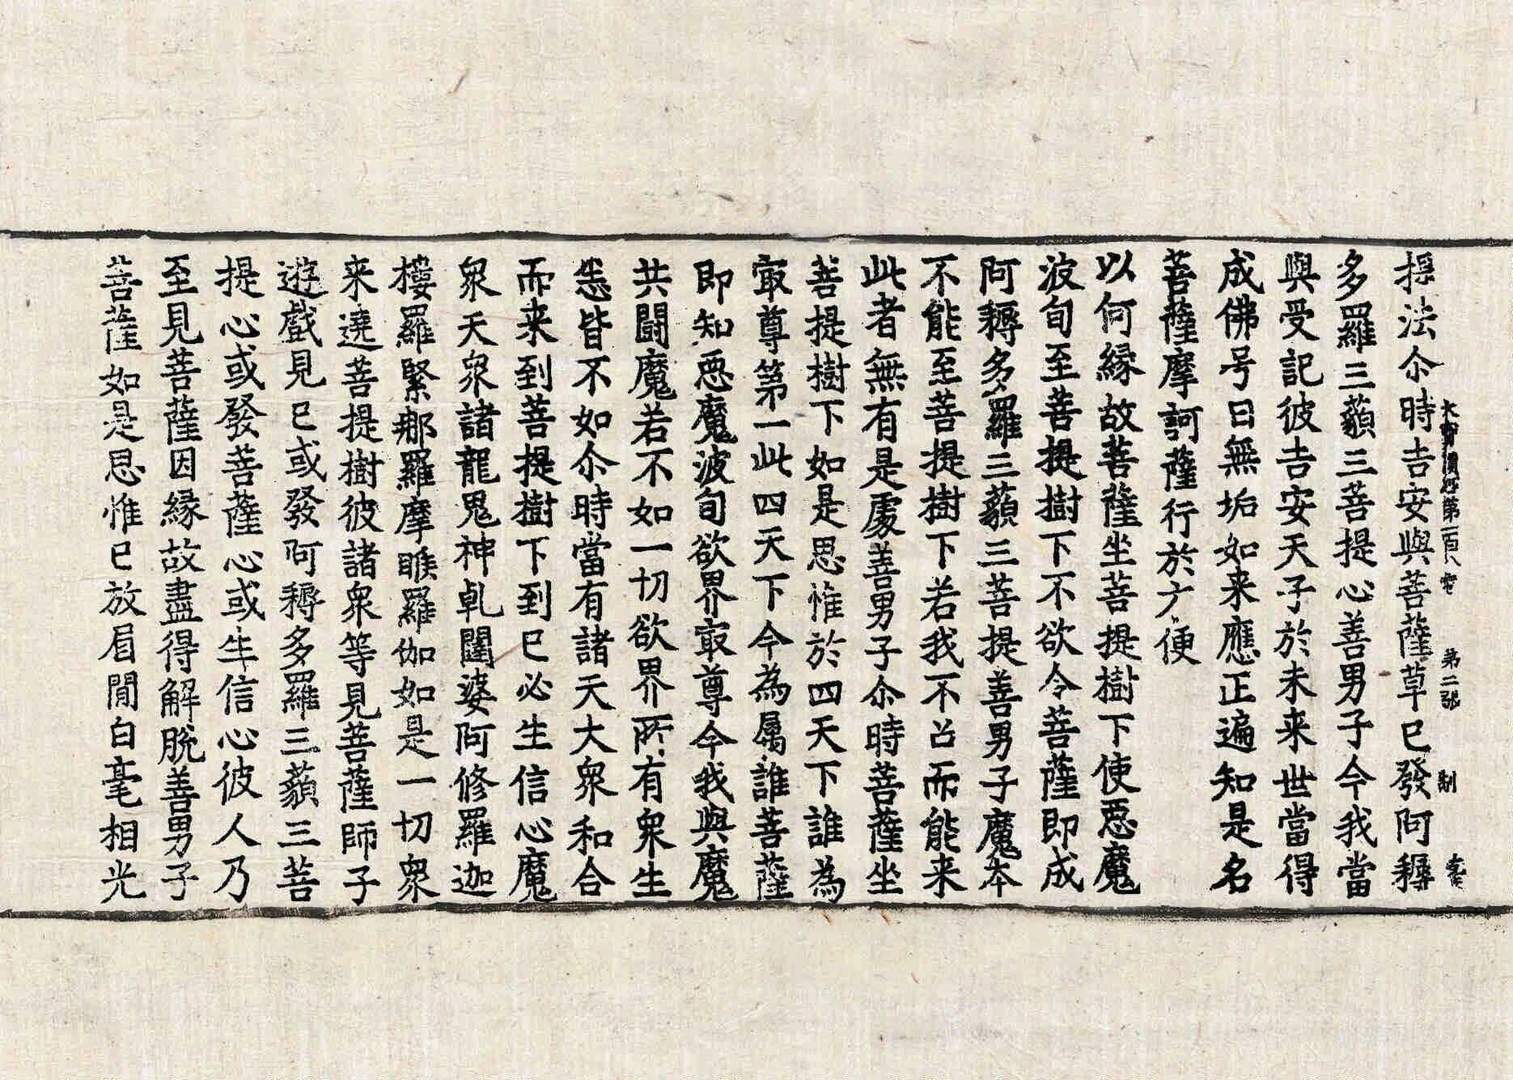 大寳積經第一百八卷 第二張 制
提法尒時吉安與菩薩草已發阿耨
多羅三藐三菩提心善男子今我當
與受記彼吉安天子於未来世當得
成佛号曰無垢如来應正遍知是名
菩薩摩訶薩行於方便
以何縁故菩薩坐菩提樹下使惡魔
波旬至菩提樹下不欲令菩薩即成
阿耨多羅三藐三菩提善男子魔本
不能至菩提樹下若我不召而能来
此者無有是處善男子尒時菩薩坐
菩提樹下如是思惟於四天下誰為
㝡尊第一此四天下今為属誰菩薩
即知惡魔波旬欲界㝡尊今我與魔
共闘魔若不如一切欲界所有衆生
悉皆不如尒時當有諸天大衆和合
而来到菩提樹下到已必生信心魔
衆天衆諸龍鬼神乹闥婆阿修羅迦
樓羅緊那羅摩睺羅伽如是一切衆
来遶菩提樹彼諸衆等見菩薩師子
遊戲見已或發阿耨多羅三藐三菩
提心或發菩薩心或生信心彼人乃
至見菩薩因縁故盡得解脫善男子
菩薩如是思惟已放眉間白毫相光